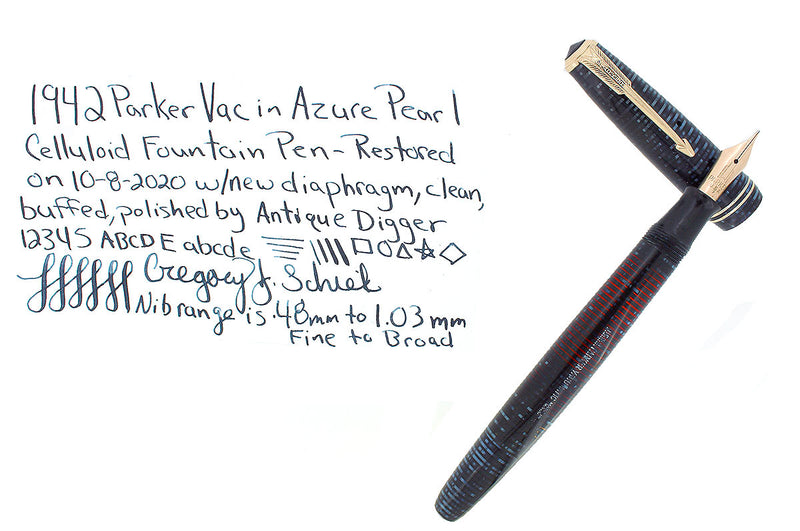 1942 Parker Vac in Azure Pearl
Celluloid Fountain Pen - Restored
on 10-8-2020 w/new diaphragm, clean,
buffed, polished by Antique Digger
12345 ABCDE abcde
Gregory J.
Nib range is .48mm to 1.03mm
Fine to Broad